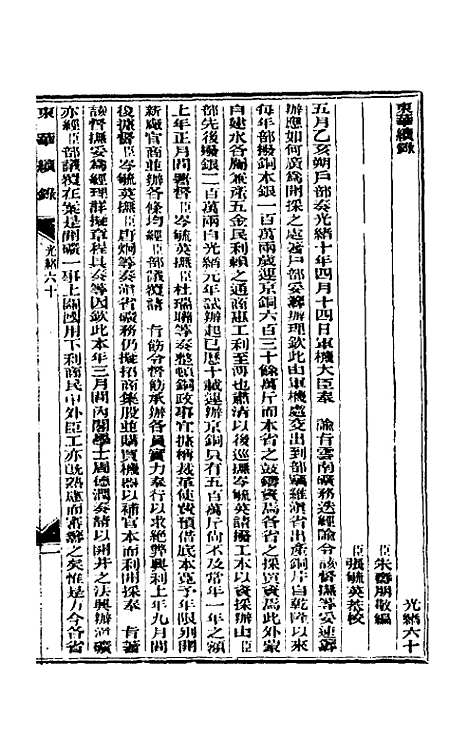 東華續錄
光緒六十
臣朱壽朋敬編
臣張毓英恭校
五月乙亥朔戶部奏光緒十年四月十四日軍機大臣奉 諭有雲南礦務迭經諭令該督撫等妥速籌
辦應如何廣為開採之處著戶部妥籌辦理欽此由軍機處交出到部竊維滇省出產銅斤自乾隆以來
每年部撥銅本銀一百萬兩歲運京銅六百三十餘萬斤而本省之鼓鑄資焉各省之採買資焉此外蒙
自建水各屬兼產五金民利賴之通商惠工利至溥也肅清以後巡撫岑毓英請撥工本以資採辦由臣
部先後撥銀二百萬兩自光緒元年試辦起已歷十載運辦京銅只有五百萬斤尚不及當年一年之額
上年正月間署督臣岑毓英撫臣杜瑞聯等奏整頓銅政事宜擴裁革使費預借底本寬予年限別開
新廠官商並辦各條均經臣部議覆請 旨飭令督飭承辦各員實力奉行以求絕弊興利上年九月間
後據督臣岑毓英撫臣唐炯等奏滇省礦務仍擬招商集股並購買機器以補官本而利開採奉 旨著
該督撫妥為經理詳擬章程具奏等因欽此本年三月間內閣學士周德潤奏請以開井之法興辦滇礦
亦經臣部議覆在案是開礦一事上關國用下利商民中外臣工亦既熟慮而審籌之矣惟是方今各省
東華續錄
光緒六十
一